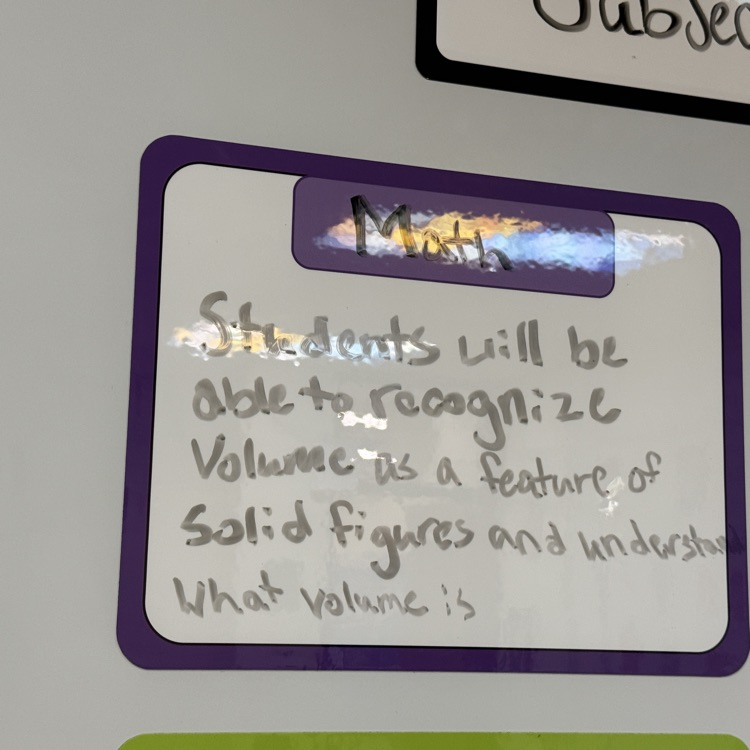 Subjec
Math
Students will be
able to recognize
Volume as a feature of
Solid figures and understan
What volume is